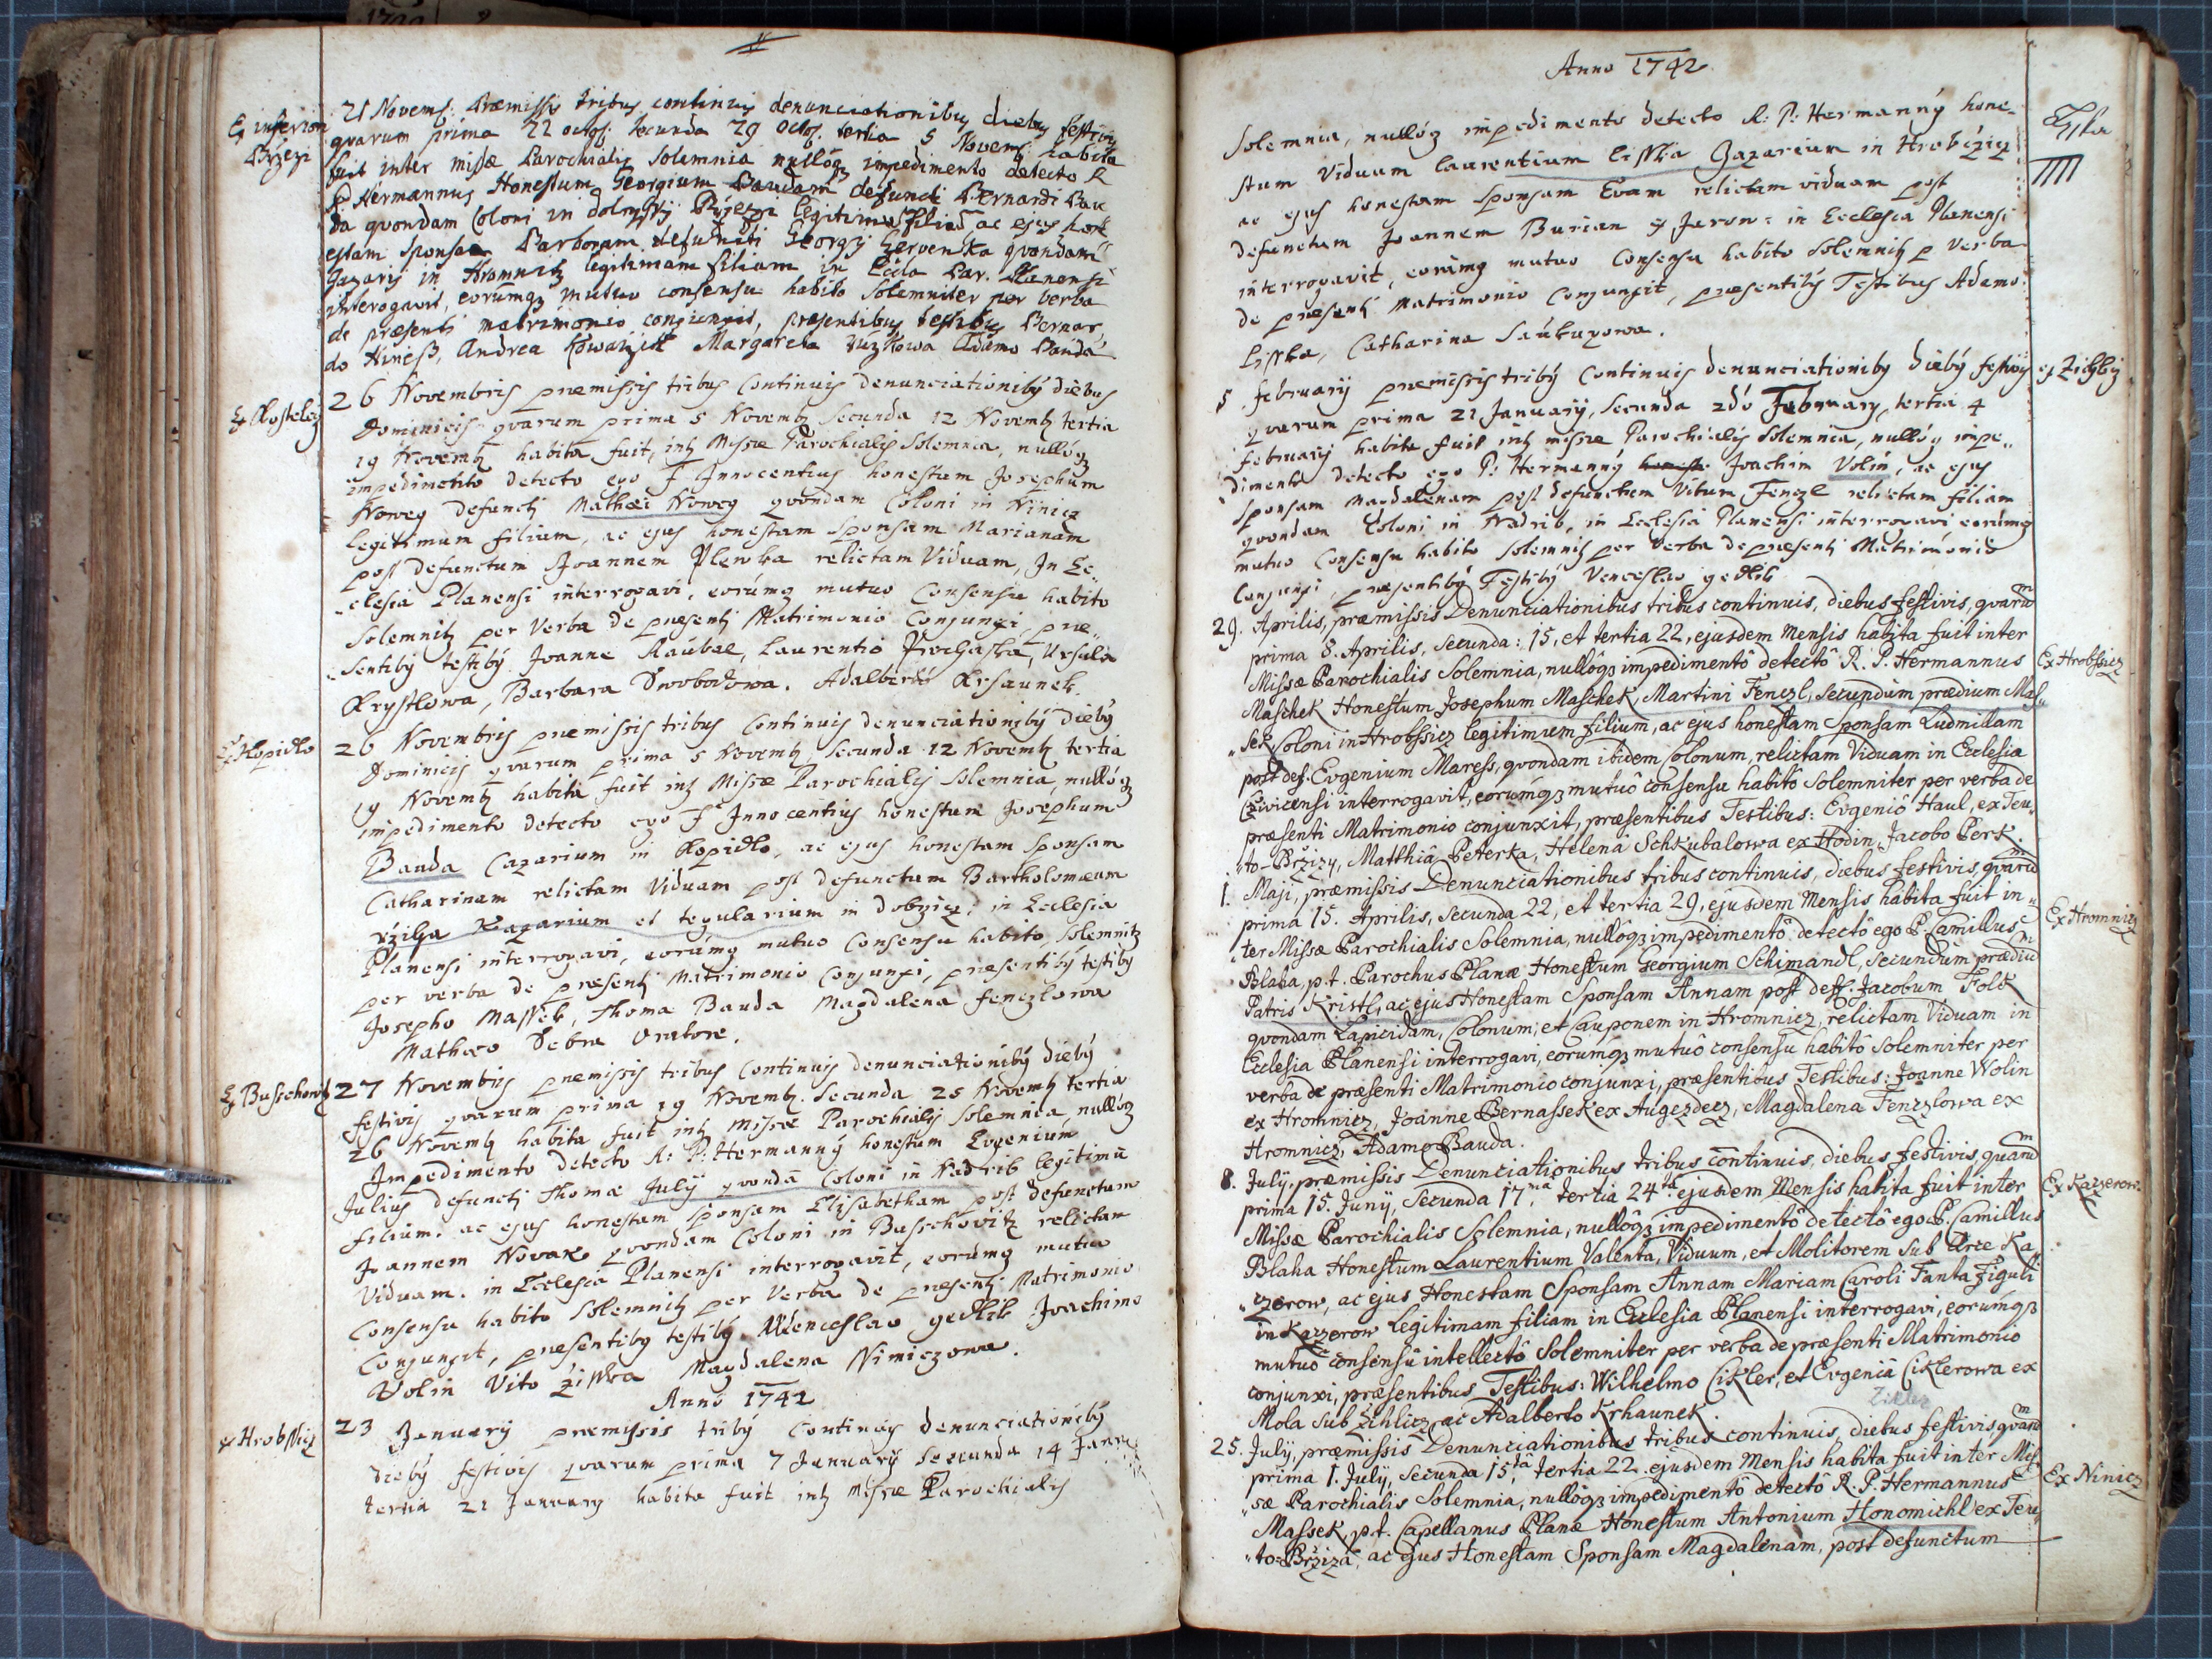 Ex inferiori
Brzezi
21 Novemb: Præmissis tribus continuis denunciationibus diebus festivis
qvarum prima 22 octob: secunda 29 octob. tertia 5 Novemb: habita
fuit inter missæ Parochialis Solemnia nullóqз impedimento detecto R
P Hermannus Honestum Georgium Baudam defuncti Bernardi Bau
da qvondam Coloni in legitimum filium ac ejus hon
estam Sponsam Barboram defuncti Georgij Czervenka qvondam
Gazarij in Hromnitz legitimam filiam in Eccla Par. Planensi
interogavit, eorúmqз mutuo consensu habito Solemniter per verba
de præsenti matrimonio conjunxit, præsentibus testibus Bernar
do Hiness, Andrea Kowarzik Margareta Adamo Bauda
Ex Kosteletz
26 Novembris præmissis tribus Continuis denunciationibỹ diebus
Dominicis qvarum prima 5 Novemb secunda 12 Novemb tertia
19 Novemb habita fuit, int Missæ Parochialis Solemnia, nullóqз
impedimento detecto ego F Innocentius honestum Josephum
Nowey defuncti Mathæi Nowey qvondam Coloni in Ninicz
legitimum filium, ac ejus honestam Sponsam Marianam
post defunctum Joannem Plewka relictam Viduam, In Ec„
„clesia Planensi interrogavi, eorúmqз mutuo Consensu habito
Solemnit per Verba de præsenti Matrimonio Conjunxi, præ„
„sentibỹ testibỹ Joanne Raúbal, Laurentio Prochaska, Ursula
Krystlowa, Barbara Swobodowa. Adalberto Krhaunek.
Ex Kopidlo
26 Novembris præmissis tribus Continuis denunciationibỹ diebỹ
Dominicis qvarum prima 5 Novemb secunda 12 Novemb tertia
19 Novemb habita fuit int Missæ Parochialis Solemnia, nullóqз
impedimento detecto ego F Innocentius honestum Josephum
Bauda Cazarium in Kopidlo, ac ejus honestam Sponsam
Catharinam relictam Viduam post defunctum Bartholomæum
rzilga Kazarium et tegularium in Dobrzicz: in Ecclesia
Planensi interrogavi, eorúmqз mutuo Consensu habito, Solemnit
per verba de præsenti Matrimonio Conjunxi, præsentibỹ testibỹ
Josepho Massek, Thoma Bauda Magdalena Fenczlowa
Mathæo Debra Oratore.
Ex Buschowitz
27 Novembris præmissis tribus Continuis denunciationibỹ diebỹ
festivis qvarum prima 19 Novemb. secunda 25 Novemb tertia
26 Novemb habita fuit int Missæ Parochialis Solemnia, nullóqз
Impedimento detecto R: P: Hermannỹ honestum Eugenium
Julius defuncti Thomæ Julij qvondā Coloni in Nadrib legitimū
filium. ac ejus honestam Sponsam Elisabetham post defunctum
Joannem Novak qvondam Coloni in Buschovitz relictam
Viduam. in Ecclesia Planensi interrogavit, eorúmqз mutuo
Consensu habito Solemnit per Verba de præsenti Matrimonio
Conjunxit, præsentibỹ testibỹ Wenceslao gedlik Joachimo
Wolin Vito Ziska Magdalena Nimiczowa.
Anno 1742
ex Hrobssicz
23 January præmissis tribỹ Continuis denunciationibỹ
diebỹ festivis qvarum prima 7 Januarij secunda 14 Janu
tertia 21 January habita fuit int Missæ Parochialis
Anno 1742
Solemnia, nullóqз impedimento detecto R: P: Hermannỹ hone-
stum Viduum Laurentium Lisska Gazarium in Hrobczicz
ac ejus honestam Sponsam Evam relictam viduam post
defunctum Joannem Burian ex Jarow: in Ecclesia Planensi
interrogavit, eorúmqз mutuo Consensu habito Solemnit p Verba
de præsenti Matrimonio Conjunxit, præsentibỹ Testibus Adamo
Lisska, Catharina Saúkupowa.
5 February præmissis tribỹ Continuis denunciationibỹ diebỹ festivis
ex Zichlicz
qvarum prima 21 Januarij, secunda 2dó February, tertia 4
February habita fuit int missæ Parochialis Solemnia, nullóqз impe„
dimento detecto ego P: Hermannỹ Joachim Volin, ac ejus
Sponsam Magdalenam post defunctum Vitum Fenczl relictam filiam
qvondam Coloni in Nadrib, in Ecclesia Planensi interrogavi eorúmqз
mutuo Consensu habito Solemnit per Verba de præsenti Matrimonio
Conjunxi, præsentibỹ Testibỹ Venceslao gedlik
29. Aprilis, præmissis Denunciationibus tribus continuis, diebus festivis, qvarum
prima 8. Aprilis, secunda: 15, et tertia 22, ejusdem Mensis habita fuit inter
Missæ Parochialis Solemnia, nullôqз impedimentô detectô R. P. Hermannus
Ex Hrobssicz
Maschek Honestum Josephum Maschek, Martini Fenczl, secundum prædium Mas„
„sek Coloni in Hrobssicz legitimum filium, ac ejus honestam Sponsam Ludmillam
post def. Evgenium Maress, qvondam ibidem Colonum, relictam Viduam in Ecclesia
interrogavit, eorúmqз mutuô consensu habitô Solemniter per verba de
præsenti Matrimonio conjunxit, præsentibus Testibus: Evgeniô Haul, ex Teu„
„to-Bržizy, Matthiâ Peterka, Helenâ Schkubalowa ex Hodin, Jacobo Perk.
1. Maji, præmissis Denunciationibus tribus continuis, diebus festivis, qvarum
prima 15. Aprilis, secunda 22, et tertia 29, ejusdem Mensis habita fuit in„
„ter Missæ Parochialis Solemnia, nullôqз impedimentô detectô ego P. Camillus
Ex Hromnicz
Blaha, p.t. Parochus Planæ Honestum Georgium Schimandl, secundum prædium
Patris Kristl, ac ejus Honestam Sponsam Annam post deff. Jacobum Folk
qvondam Lapicidam, Colonum, et Cauponem in Hromnicz, relictam Viduam in
Ecclesia Planensi interrogavi, eorumqз mutuô consensu habitô solemniter per
verba de præsenti Matrimonio conjunxi, præsentibus Testibus: Joanne Wolin
ex Hromnicz, Joanne Bernassek ex Augezdecz, Magdalena Fenczlowa ex
Hromnicz, Adamo Bauda.
8. July, præmissis Denunciationibus tribus continuis, diebus festivis, qvarum
prima 15. Juny, secunda 17ma, tertia 24ta ejusdem Mensis habita fuit inter
Ex Kazerow
Missæ Parochialis Solemnia, nullôqз impedimentô detectô ego P. Camillus
Blaha Honestum Laurentium Valenta, Viduum, et Molitorem sub Arce Ka„
„czerow, ac ejus Honestam Sponsam Annam Mariam Caroli Fanta Figuli
in Kazzerow Legitimam filiam in Ecclesia Planensi interrogavi, eorúmqз
mutuô consensû intellectô Solemniter per verba de præsenti Matrimonio
conjunxi, præsentibus Testibus: Wilhelmo Cikler, et Evgeniâ Ciklerowa ex
Mola sub Zihlicz, ac Adalberto Krhaunek.
25. July, præmissis Denunciationibus tribus continuis, diebus festivis, qvarum
prima 1. July, secunda 15ta, tertia 22 ejusdem Mensis habita fuit inter Mis„
„sæ Parochialis Solemnia, nullôqз impedimentô detectô R. P. Hermannus
Ex Ninicz
Massek, p.t. Capellanus Planæ Honestum Antonium Honomichl ex Teu„
„to-Bržiza, ac ejus Honestam Sponsam Magdalenam, post defunctum